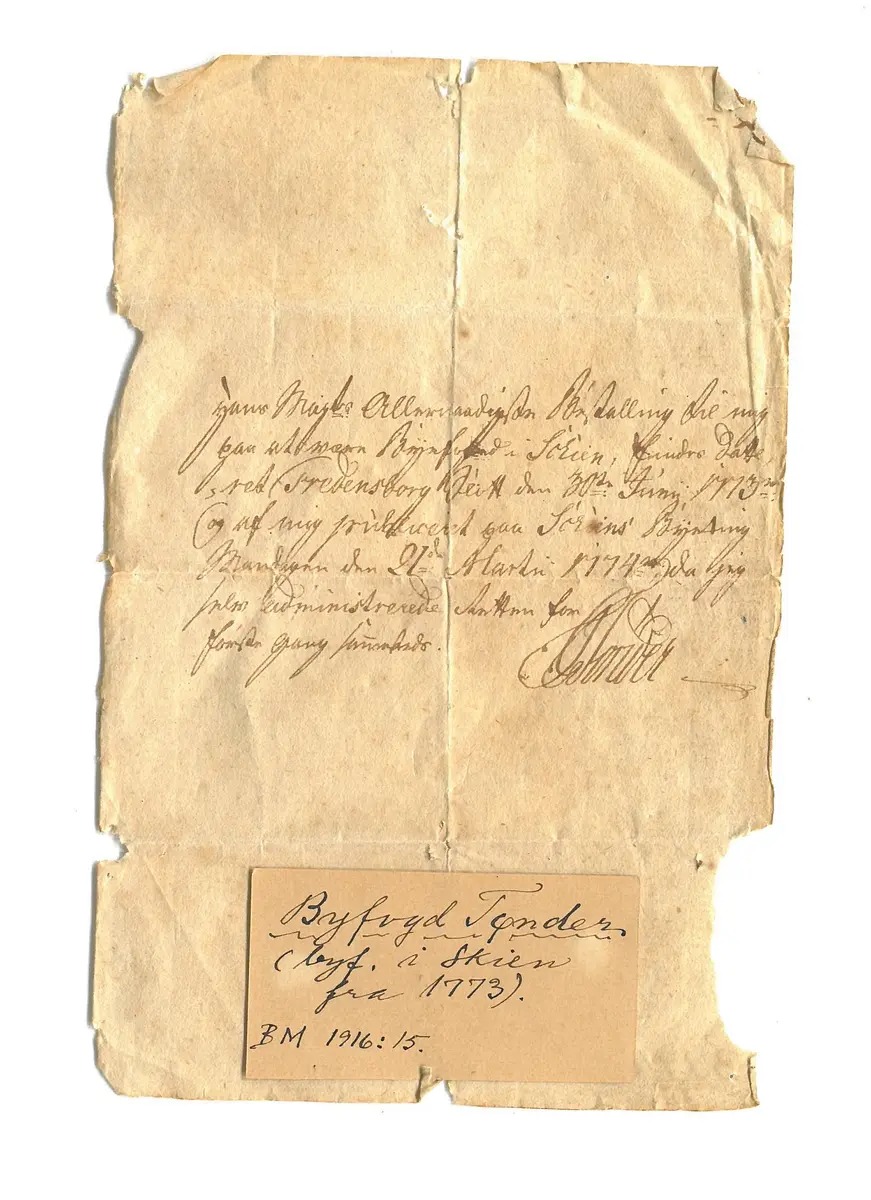 Hans Maÿts Allernaadigste Bestalling til mig
paa at være Byefoged i Schien, findes Date
ret Fredensborg Slott den 30te Junÿ 1773
og af mig publiceret paa Schiens Byeting
Mandagen den 21de Martii 1774 da jeg
selv administrerede Retten for
første gang sammesteds.
Tønder
Byfogd Tønder
(byf. i Skien
fra 1773).
BM 1916:15.